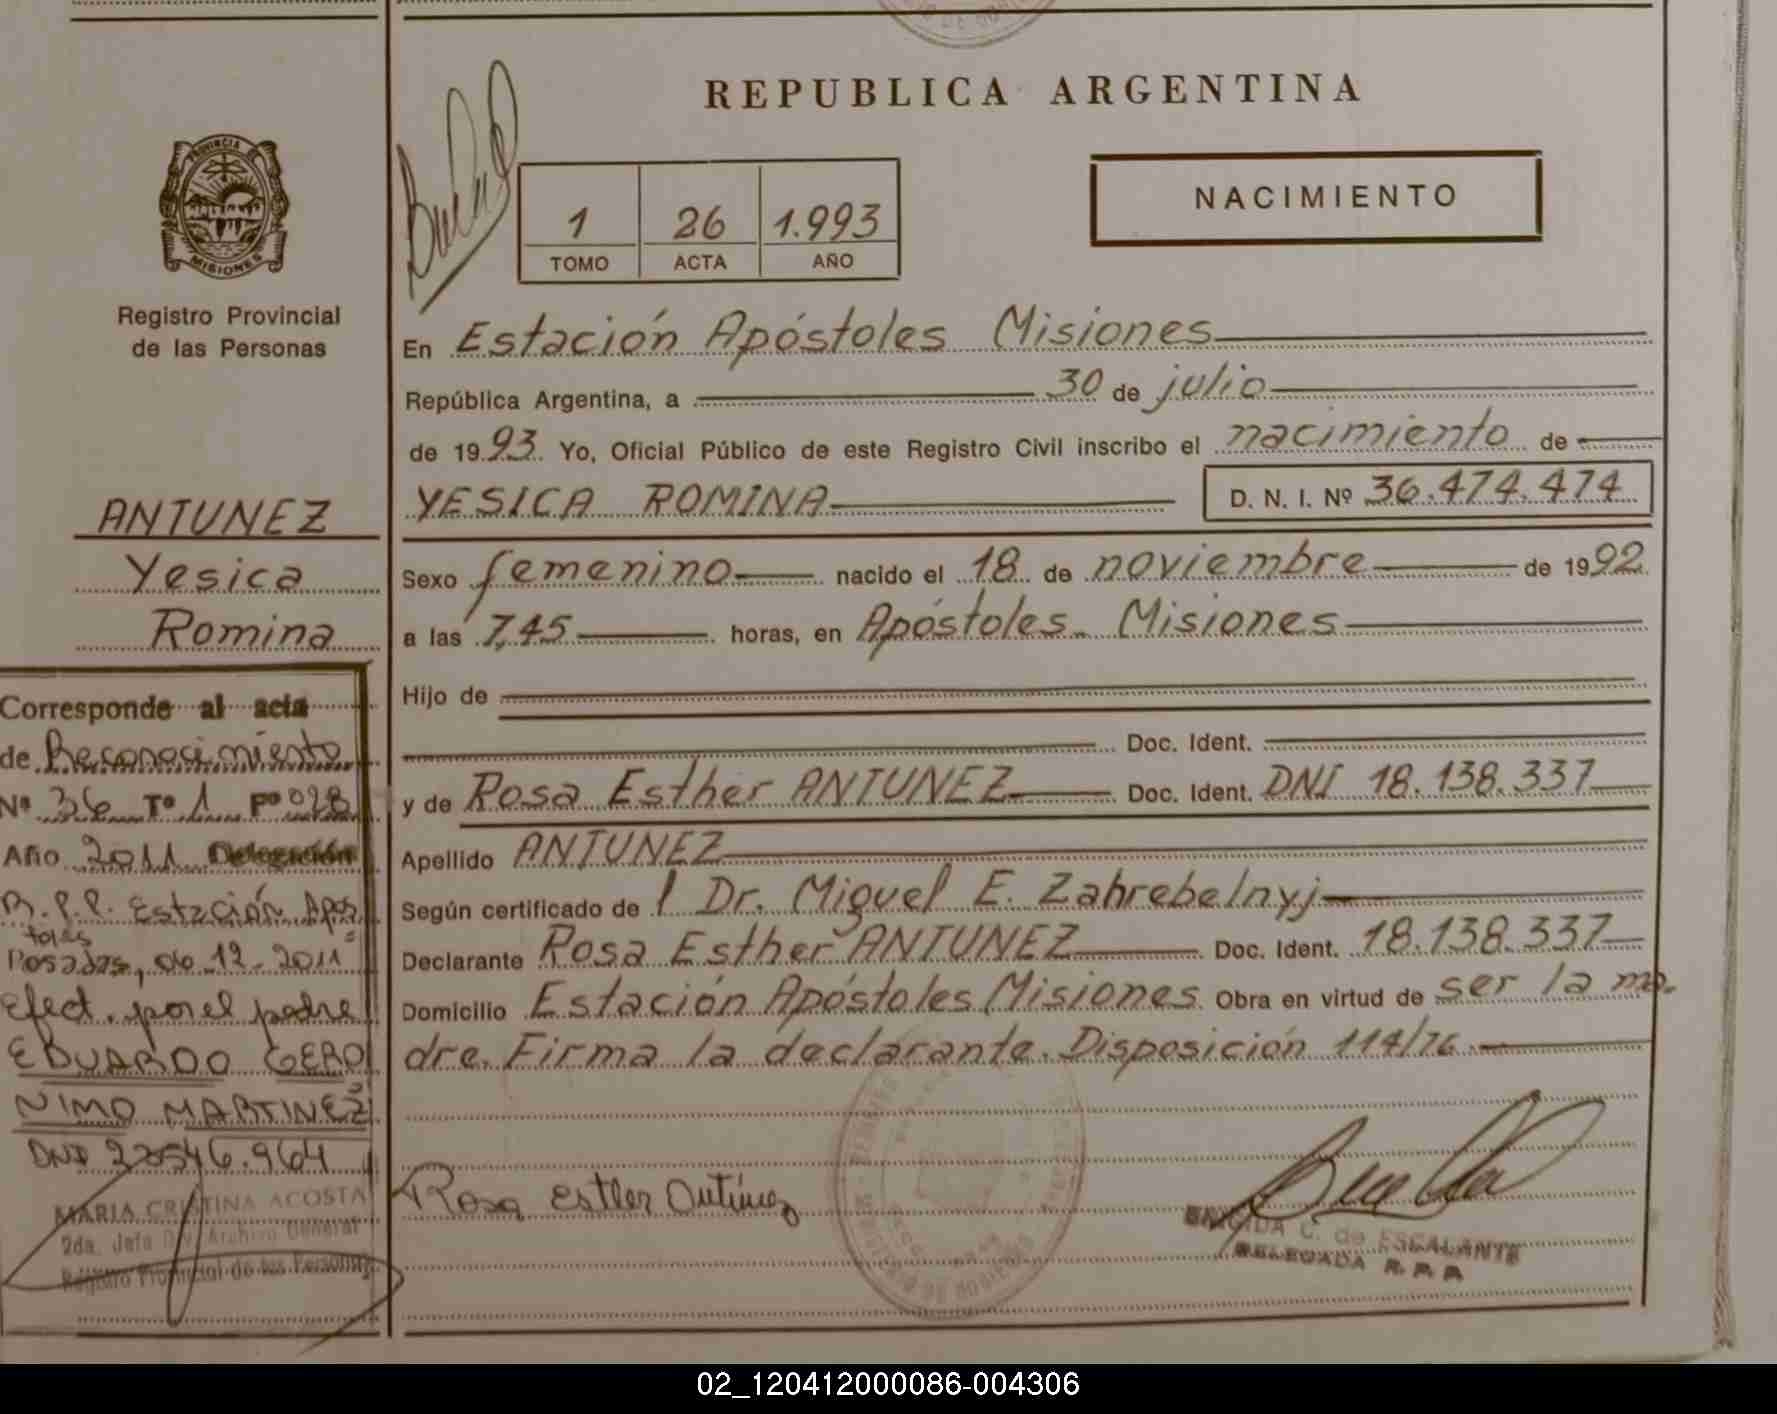 REPUBLICA ARGENTINA
PROVINCIA DE
MISIONES
Registro Provincial
de las Personas
1 26 1.993
TOMO ACTA AÑO
NACIMIENTO
En Estación Apóstoles Misiones
República Argentina, a 30 de julio
de 1993. Yo, Oficial Público de este Registro Civil inscribo el nacimiento de
YESICA ROMINA D. N. I. Nº 36.474.474
Sexo femenino nacido el 18 de noviembre de 1992
a las 7,45 horas, en Apóstoles. Misiones
Hijo de
Doc. Ident.
y de Rosa Esther ANTUNEZ Doc. Ident. DNI 18.138.337
Apellido ANTUNEZ
Según certificado de l Dr. Miguel E. Zahrebelnyj
Declarante Rosa Esther ANTUNEZ Doc. Ident. 18.138.337
Domicilio Estación Apóstoles Misiones. Obra en virtud de ser la ma
dre. Firma la declarante. Disposición 114/76
Rosa Esther Antúnez
BRIGIDA C. de ESCALANTE
DELEGADA R. P. P.
ANTUNEZ
Yesica
Romina
Corresponde al acta
de Reconocimiento
Nº 36 Tº 1 Fº 028
Año 2011 Delegación
R.P.P. Estación Após
toles
Posadas, 06-12-2011
Efect. por el padre
EDUARDO GERO
NIMO MARTINEZ
DNI 22546.964
MARIA CRISTINA ACOSTA
2da. Jefa Div. Archivo General
Registro Provincial de las Personas
02_120412000086-004306